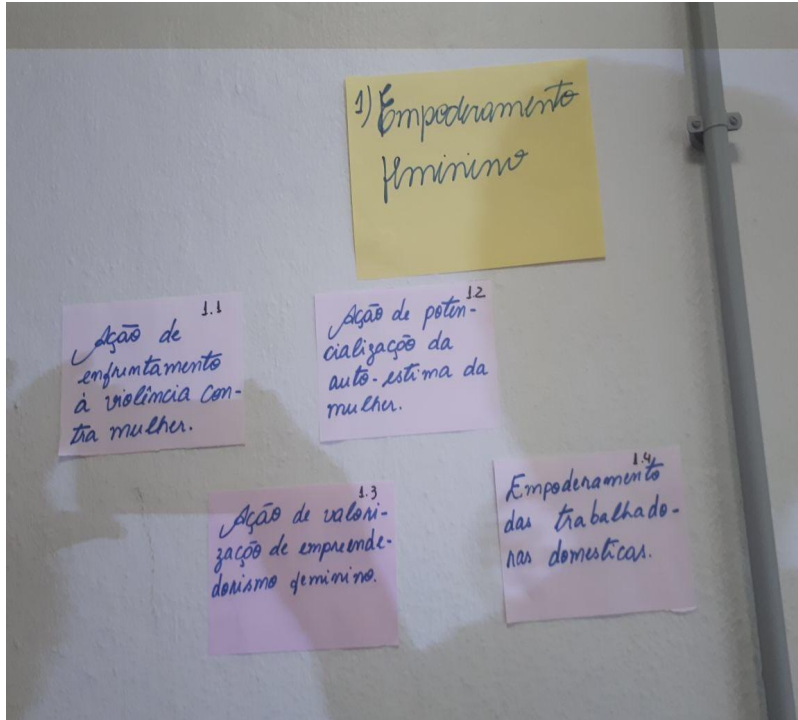 1) Empoderamento
feminino
1.1
Ação de
enfrentamento
à violência con-
tra mulher.
1.2
Ação de poten-
cialização da
auto-estima da
mulher.
1.3
Ação de valori-
zação de empreende-
dorismo feminino.
1.4
Empoderamento
das trabalhado-
ras domesticas.